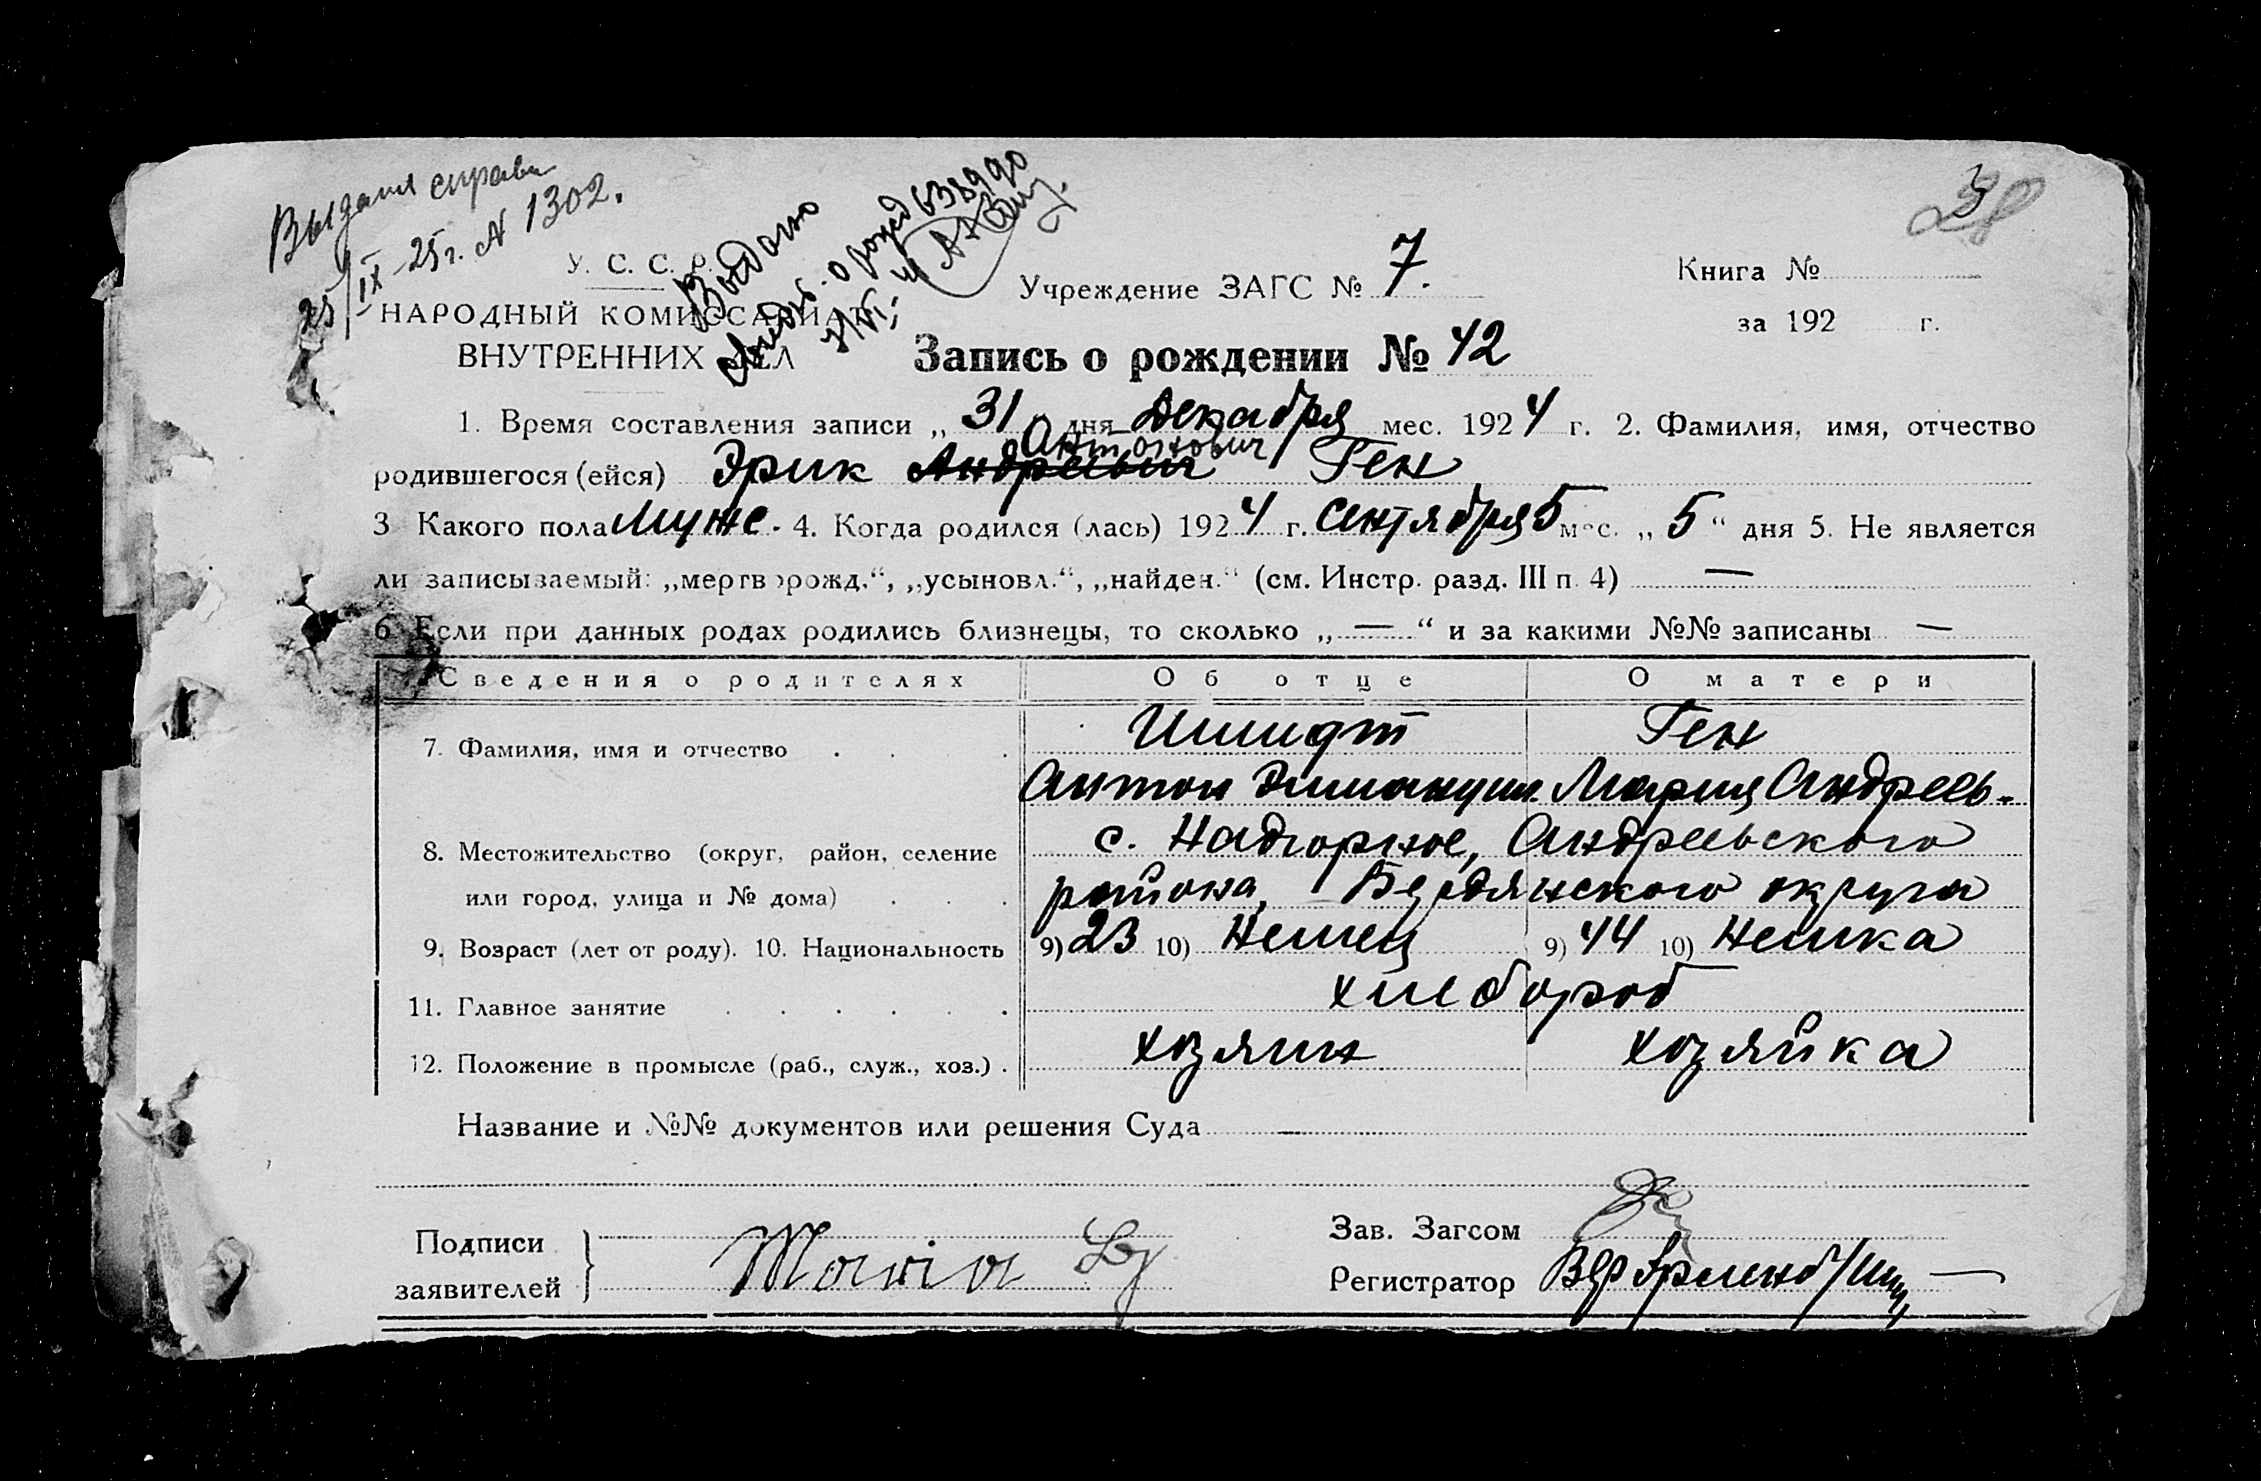 Выдана справк
25/IX-25г. № 1302.
Выдано
свидет. о рожд
У. С. С. Р.
НАРОДНЫЙ КОМИССАРИАТ
ВНУТРЕННИХ ДЕЛ
Учреждение ЗАГС № 7.
Книга №
за 192 г.
Запись о рождении № 42
1. Время составления записи „ 31 " дня Декабря мес. 1924 г. 2. Фамилия, имя, отчество
Антонович
родившегося (ейся) Эрик Андреевич Ген
3 Какого пола Муже. 4. Когда родился (лась) 1924 г. Сентября 5 мес. „ 5 " дня 5. Не является
ли записываемый: „мертворожд.", „усыновл.", „найден." (см. Инстр. разд. III п. 4) —
6 Если при данных родах родились близнецы, то сколько „ — " и за какими №№ записаны —
Сведения о родителях Об отце О матери
7. Фамилия, имя и отчество Шмидт Ген
Антон Эмануил. Мария Андреев.
8. Местожительство (округ, район, селение с. Надгорное, Андреевского
или город, улица и № дома) района, Бердянского округа
9. Возраст (лет от роду). 10. Национальность 9) 23 10) Немец 9) 44 10) Немка
11. Главное занятие хлебороб
12. Положение в промысле (раб., служ., хоз.) хозяин хозяйка
Название и №№ документов или решения Суда —
Подписи
заявителей
Maria
Зав. Загсом
Регистратор